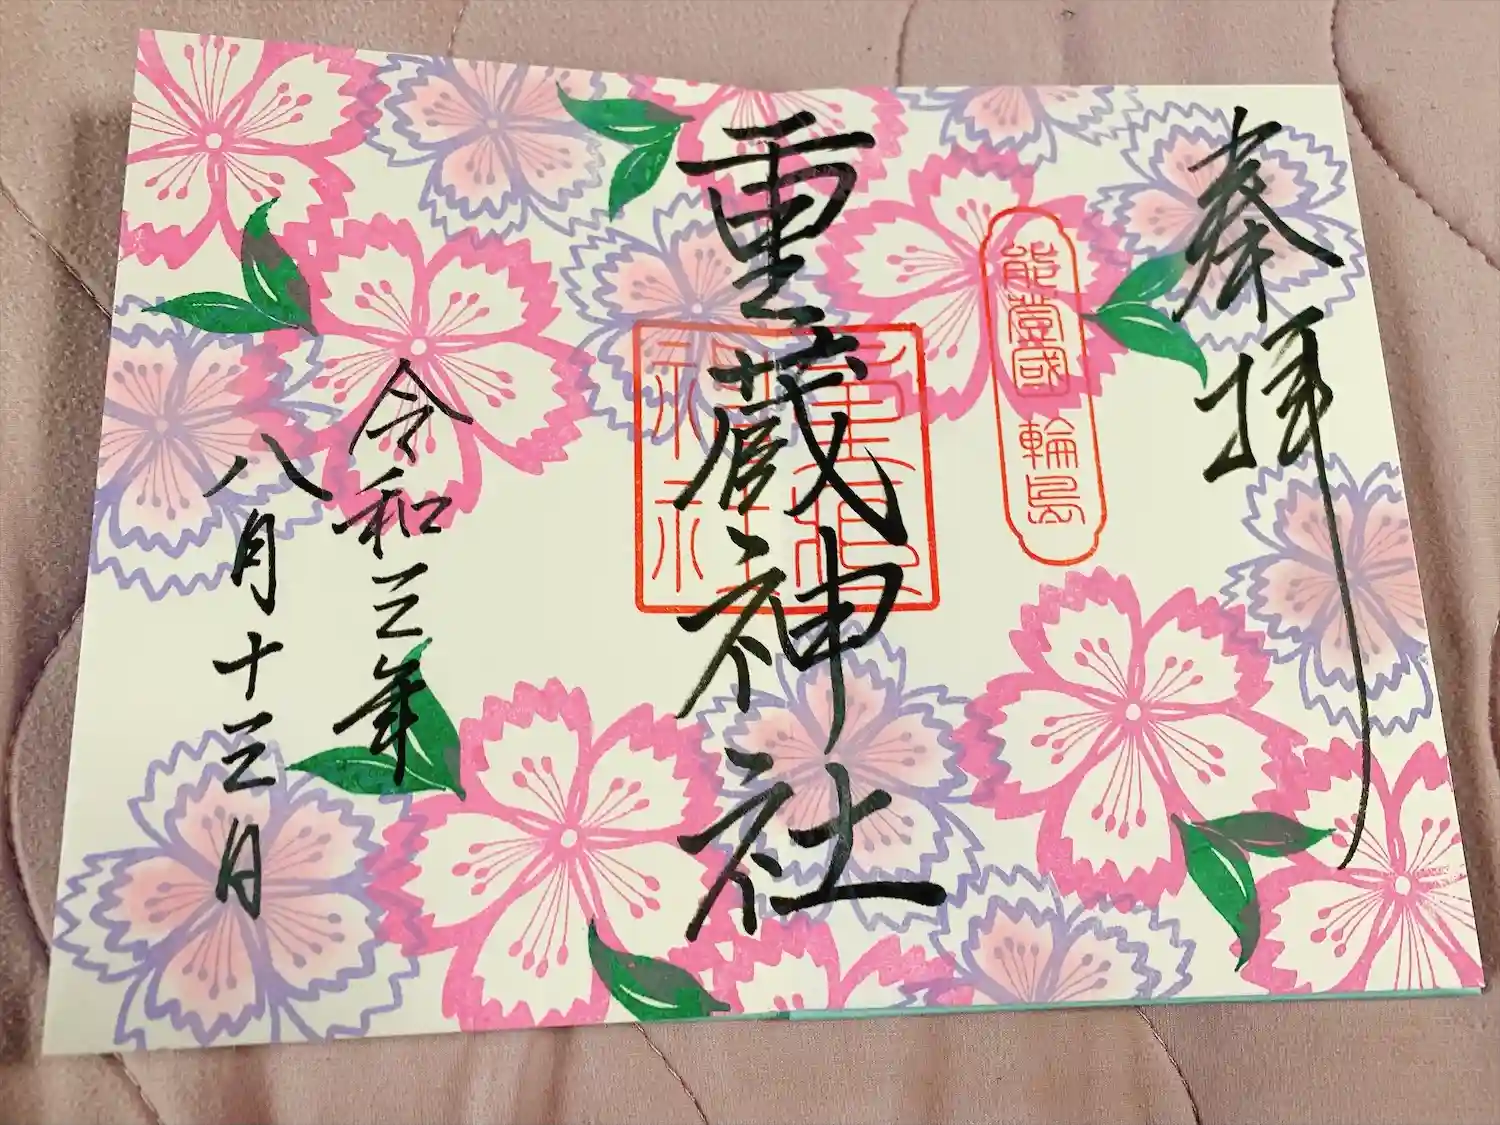 奉拝
能登國 輪島
重蔵神社
重蔵神社
令和三年
八月十三日